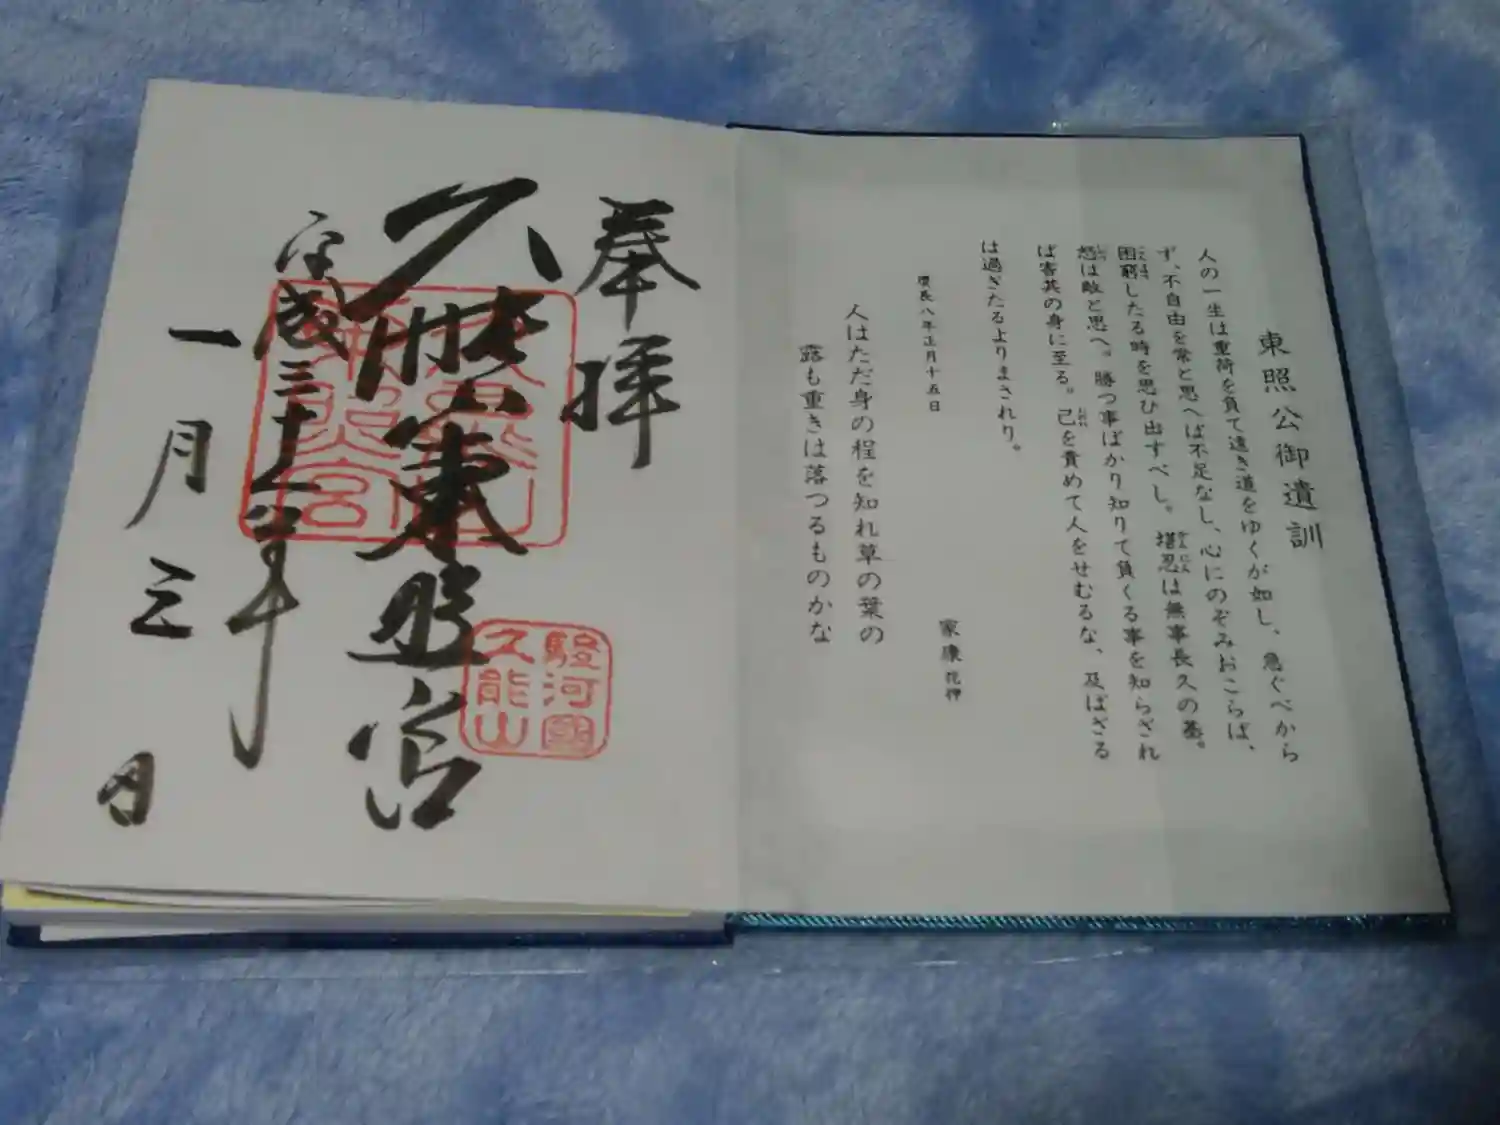 東照公御遺訓
人の一生は重荷を負て遠き道をゆくが如し、急ぐべから
ず、不自由を常と思へば不足なし、心にのぞみおこらば、
困窮したる時を思ひ出すべし。堪忍は無事長久の基。
怒は敵と思へ。勝つ事ばかり知りて負くる事を知らざれ
ば害其の身に至る。己を責めて人をせむるな、及ばざる
は過ぎたるよりまされり。
慶長八年正月十五日
家康花押
人はただ身の程を知れ草の葉の
露も重きは落つるものかな
奉拝
久能山東照宮
平成三十年
一月三日
駿河國
久能山